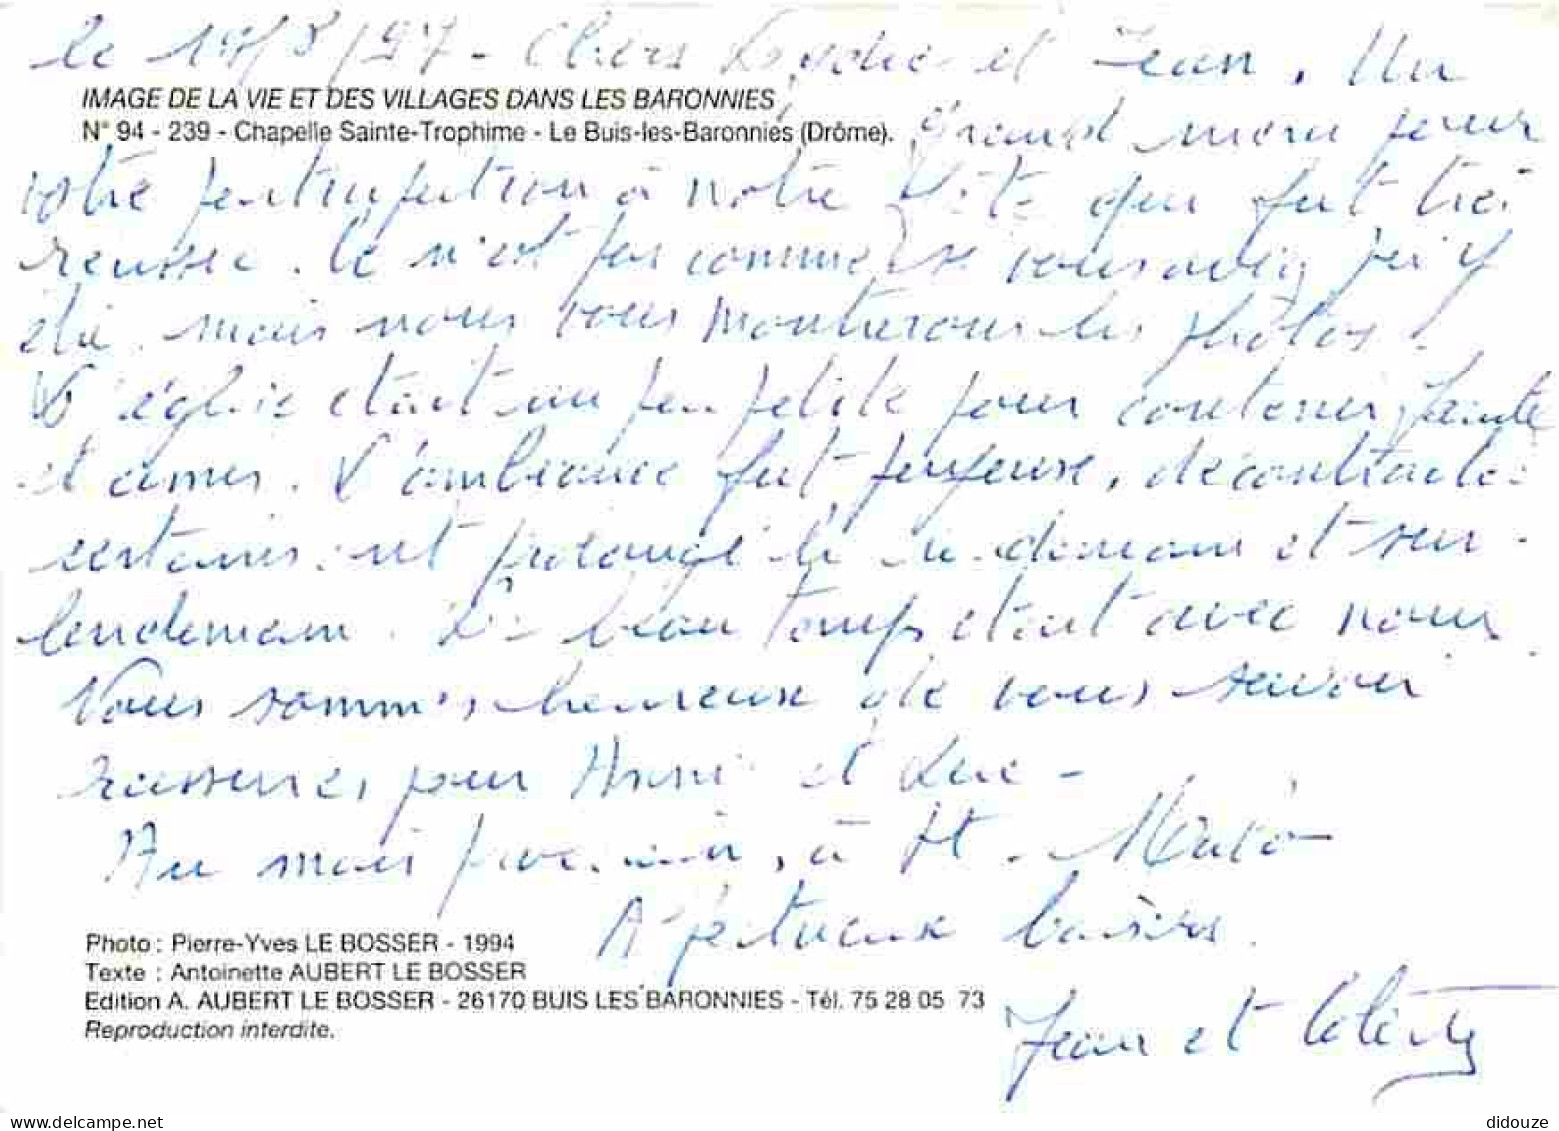 le 17/8/97 - Chers et Jean. Un
IMAGE DE LA VIE ET DES VILLAGES DANS LES BARONNIES
N° 94 - 239 - Chapelle Sainte-Trophime - Le Buis-les-Baronnies (Drôme).
grand merci pour
votre participation à notre fête qui fut très
réussie. Ce n'est pas comme si vous aviez
été mais nous vous montrerons les photos.
L'église était un peu petite pour contenir famille
et amis. L'ambiance fut joyeuse, décontractée
certains ont prolongé le demain et sur-
lendemain. Le beau temps était avec nous.
Nous sommes heureux de vous savoir
rassurés pour Annie et Luc -
Au mois prochain, à St. Malo
Affectueux baisers.
Photo : Pierre-Yves LE BOSSER - 1994
Texte : Antoinette AUBERT LE BOSSER
Edition A. AUBERT LE BOSSER - 26170 BUIS LES BARONNIES - Tél. 75 28 05 73
Reproduction interdite.
Jean et
delcampe.net
didouze